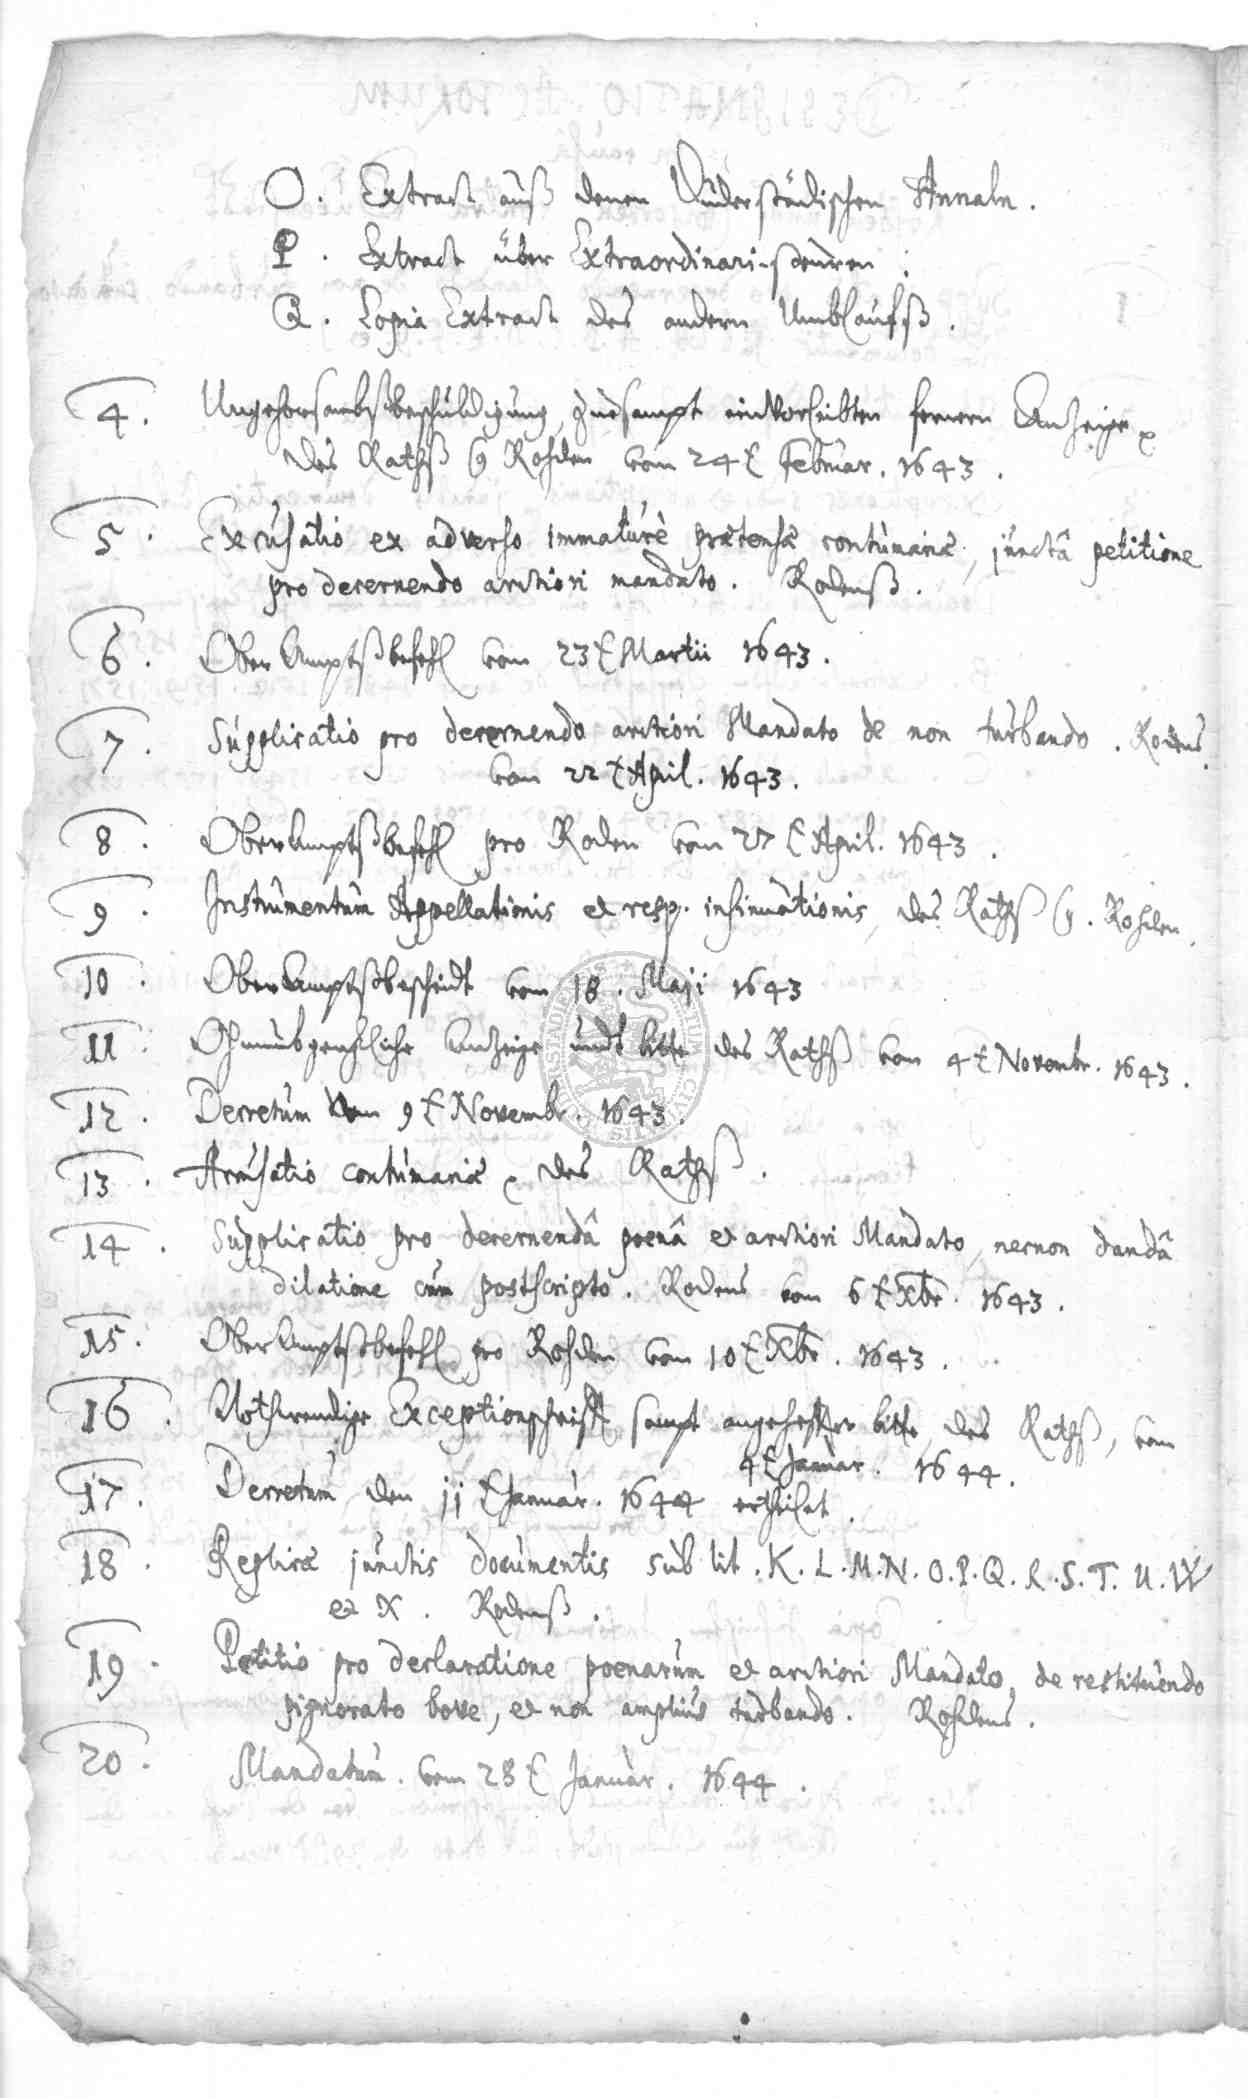 O. Extract auß denen Duderstädischen Annaln.
P. Extract über Extraordinari-steuren.
Q. Copia Extract des andern Umblaufß.
4. Ungehorsambßbeschuldigung, zuesampt einVorleibten fernern Anzeige
des Rathß Cª Rohden vom 24t Februar. 1643.
5. Excusatio ex adverso immaturè prætensæ contumaciæ, junctâ petitione
pro decernendo arctiori mandato. Rodenß.
6. OberAmptßbefehl vom 23t Martii 1643.
7. Supplicatio pro decernendo arctiori Mandato de non turbando. Rodens.
vom 22t April. 1643.
8. OberAmptßbefehl pro Roden vom 27t April. 1643.
9. Instrumentum Appellationis et resp. insinuationis, des Rathß Cª. Rohden.
10. OberAmptßbescheidt vom 18. Maji 1643
11. Anzeige undt bitte des Rathß vom 4t Novembr. 1643.
12. Decretum Vom 9t Novembr. 1643.
13. Accusatio contumaciæ des Rathß.
14. Supplicatio pro decernendâ poenâ et arctiori Mandato, necnon dandâ
dilatione cum postscripto. Rodens vom 6t Xbr. 1643.
15. OberAmptßbefehl pro Rohden vom 10t Xbr. 1643.
16. Nothwendige Exceptionschrifft sampt angeheffter bitte, des Rathß, vom
4t Januar. 1644.
17. Decretum den 11t Januar. 1644 ertheilet.
18. Replicæ junctis documentis sub lit. K. L. M. N. O. P. Q. R. S. T. U. W
et X. Rodenß.
19. Petitio pro declaratione poenarum et arctiori Mandato, de restituendo
pignorato bove, et non amplius turbando. Rohdens.
20. Mandatum. vom 28t Januar. 1644.